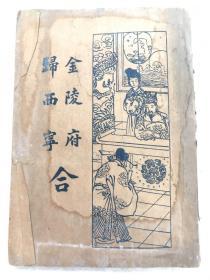 金陵府
歸西寧
合